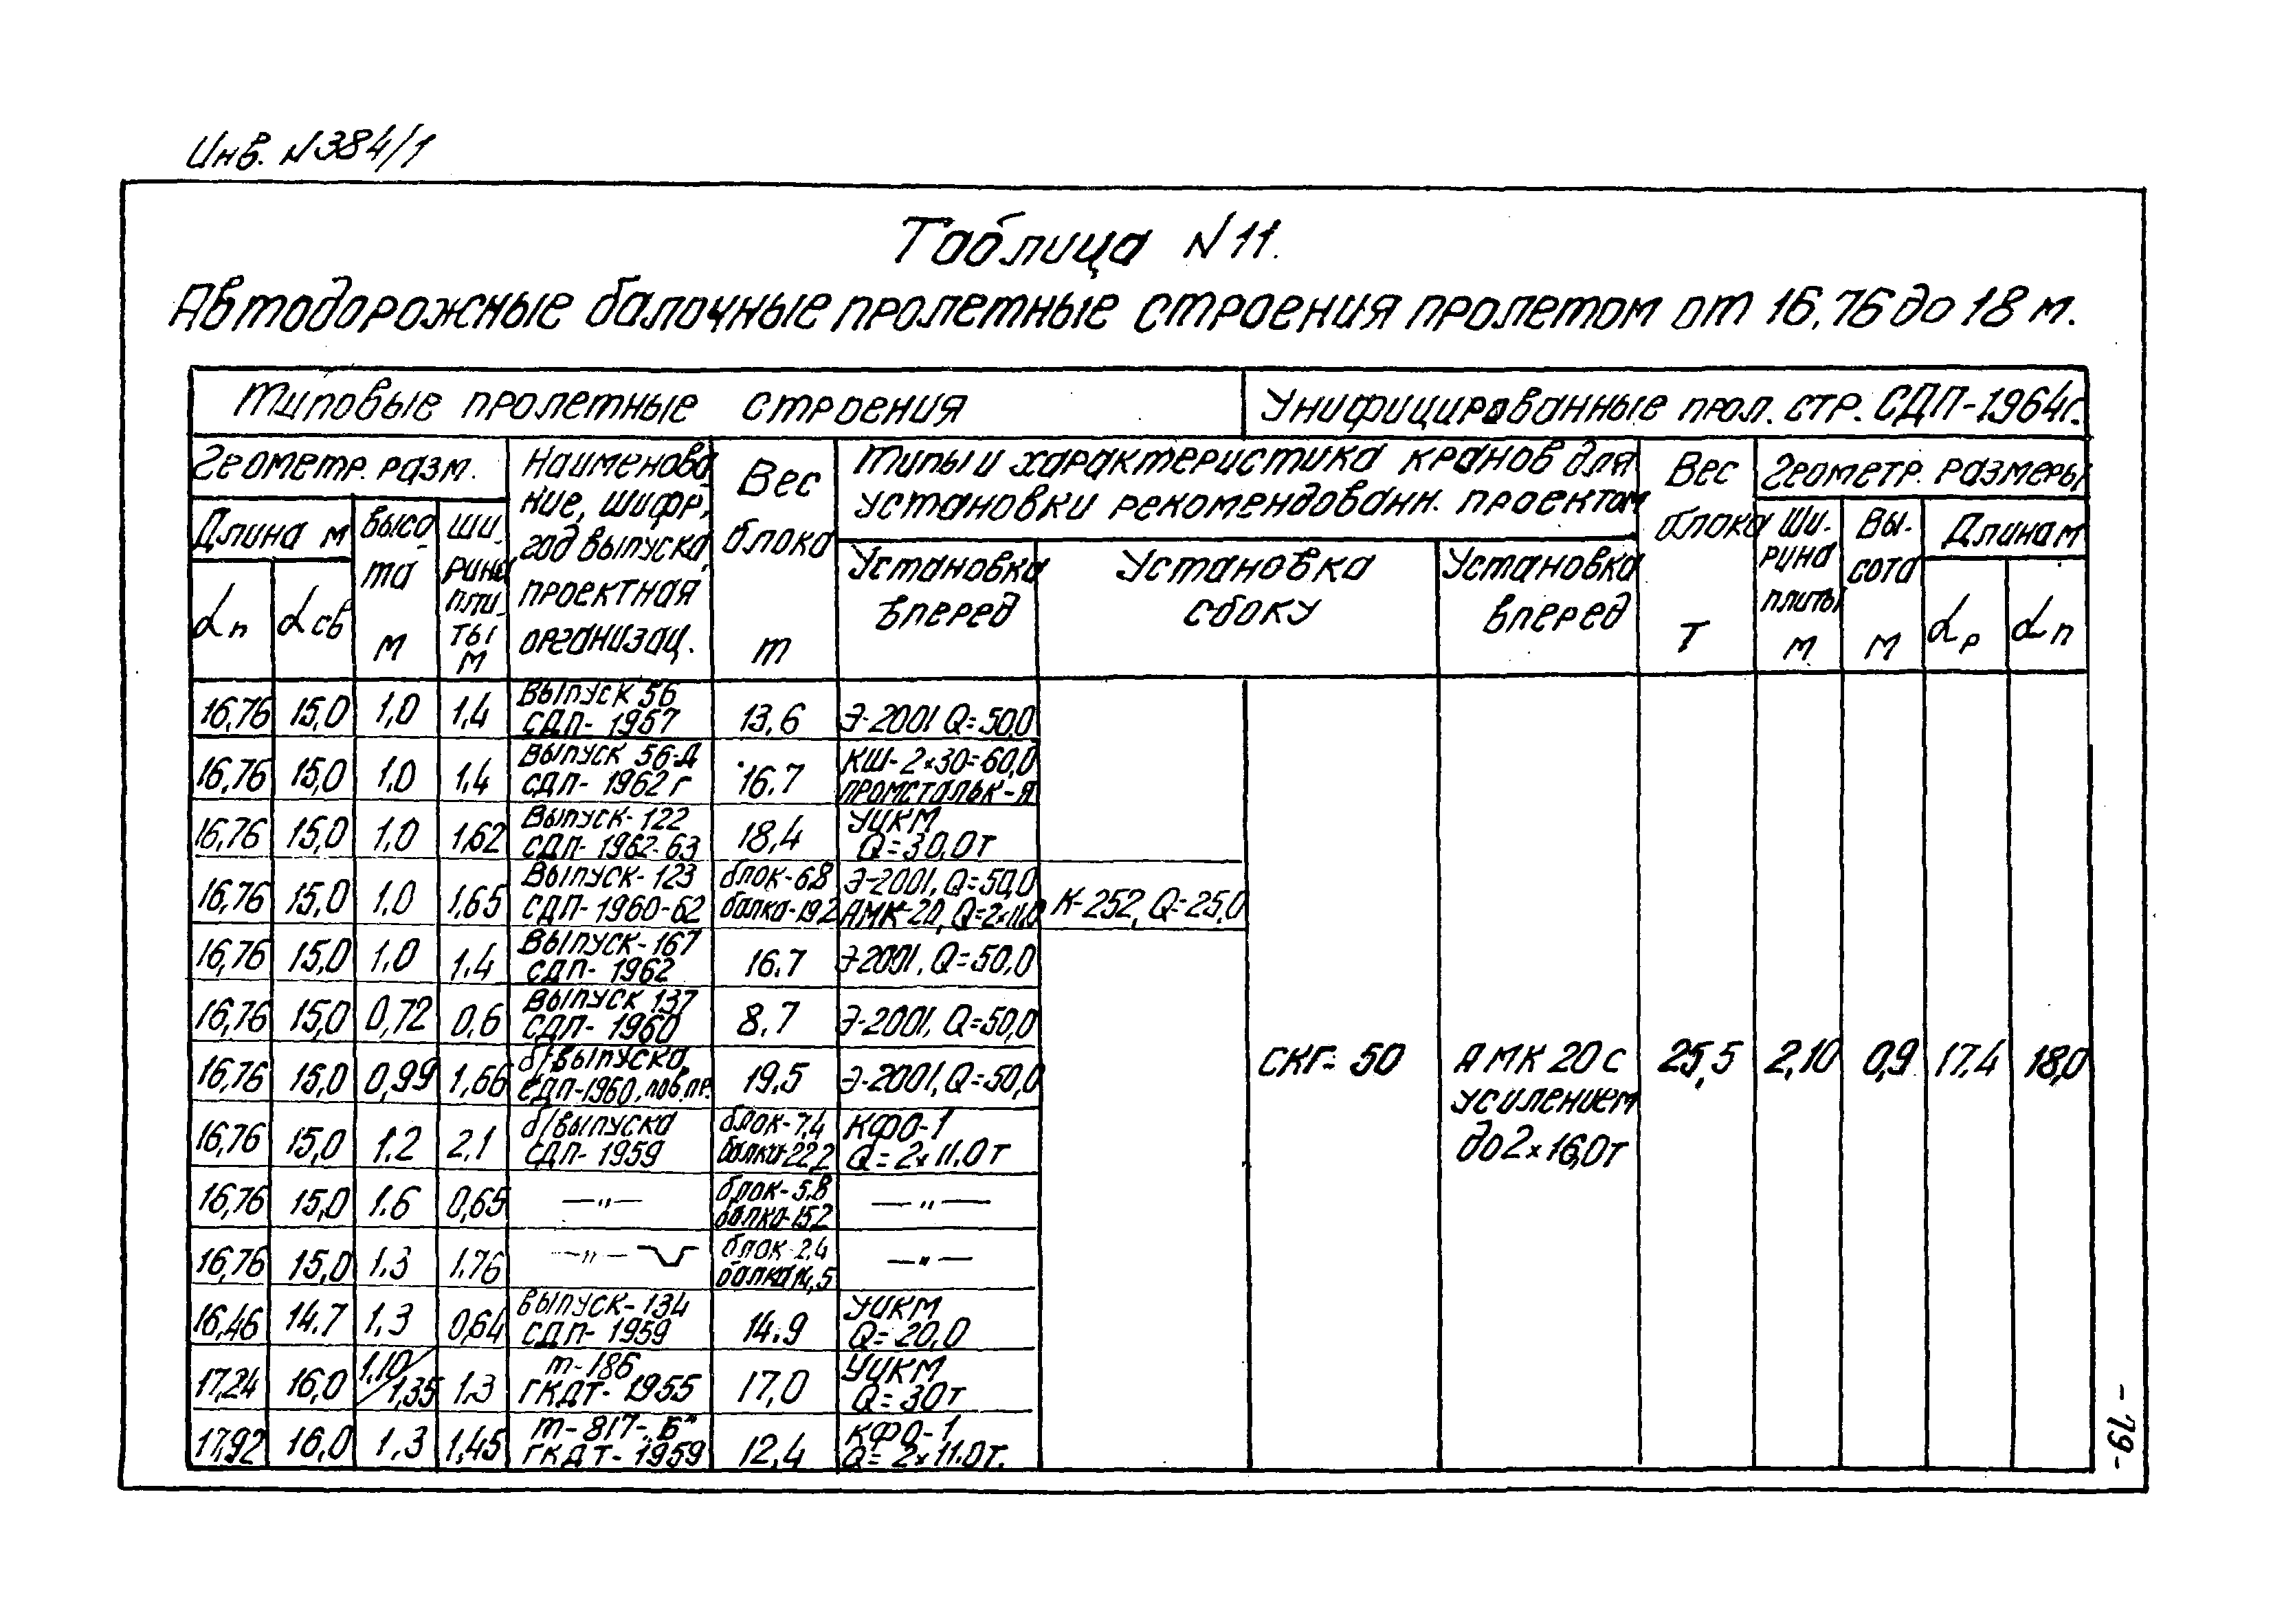 Инв. N384/1
Таблица N11.
Автодорожные балочные пролетные строения пролетом от 16,76 до 18 м.
Типовые пролетные строения
Унифицированные прол. стр. СДП-1964г.
Геометр. разм.
Наименова-
ние, шифр,
год выпуска,
проектная
организац.
Вес
блока
т
Типы и характеристика кранов для
установки рекомендованн. проектом
Вес
блока
Т
Геометр. размеры
Длина м
высо-
та
м
ши-
рина
пли-
ты
м
Ши-
рина
плиты
м
Вы-
сота
м
Длина м
Установка
вперед
Установка
сбоку
Установка
вперед
αп
αсв
αр
αп
16,76 15,0 1,0 1,4 Выпуск 56 СДП- 1957 13,6 Э-2001 Q=50,0
16,76 15,0 1,0 1,4 Выпуск 56-Д СДП- 1962 г 16.7 КШ- 2×30=60,0 промстальк-я
16,76 15,0 1,0 1,62 Выпуск- 122 СДП- 1962-63 18,4 УЦКМ Q=30,0т
16,76 15,0 1.0 1,65 Выпуск- 123 СДП-1960-62 блок-6,8 балка-19,2 Э-2001, Q=50,0 АМК-20, Q=2×11,0 К-252, Q=25,0
16,76 15,0 1.0 1.4 Выпуск-167 СДП- 1962 16.7 Э-2001, Q=50,0
16,76 15,0 0,72 0,6 Выпуск 137 СДП- 1960 8.7 Э-2001, Q=50,0
16,76 15,0 0,99 1,66 б/выпуска, СДП-1960, пов.пр. 19,5 Э-2001, Q=50,0
СКГ- 50
АМК 20 с
усилением
до 2×16,0т
25,5 2,10 0,9 17,4 18,0
16,76 15,0 1.2 2.1 б/выпуска СДП- 1959 блок-7,4 балка-22,2 КФО-1 Q= 2×11.0т
16,76 15,0 1.6 0,65 —"— блок-5.8 балка-15,2 —"—
16,76 15,0 1.3 1.76 —"— блок-2,4 балка14,5 —"—
16,46 14.7 1.3 0,64 выпуск-134 СДП- 1959 14.9 УЦКМ Q= 20,0
17,24 16,0 1,10/1,35 1,3 т-186 ГКДТ- 1955 17,0 УЦКМ Q= 30т
17,92 16,0 1,3 1,45 т-817-„Б" ГКДТ- 1959 12,4 КФО-1 Q= 2×11.0т.
-79-